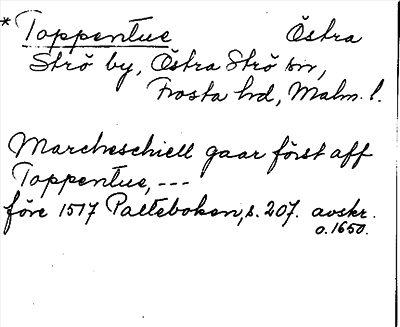 * Toppentue Östra
Strö by, Östra Strö sn,
Frosta hd, Malm. l.
Marcheschiell gaar först aff
Toppentue, ---
före 1517 Palteboken, s. 207. avskr.
o. 1650.